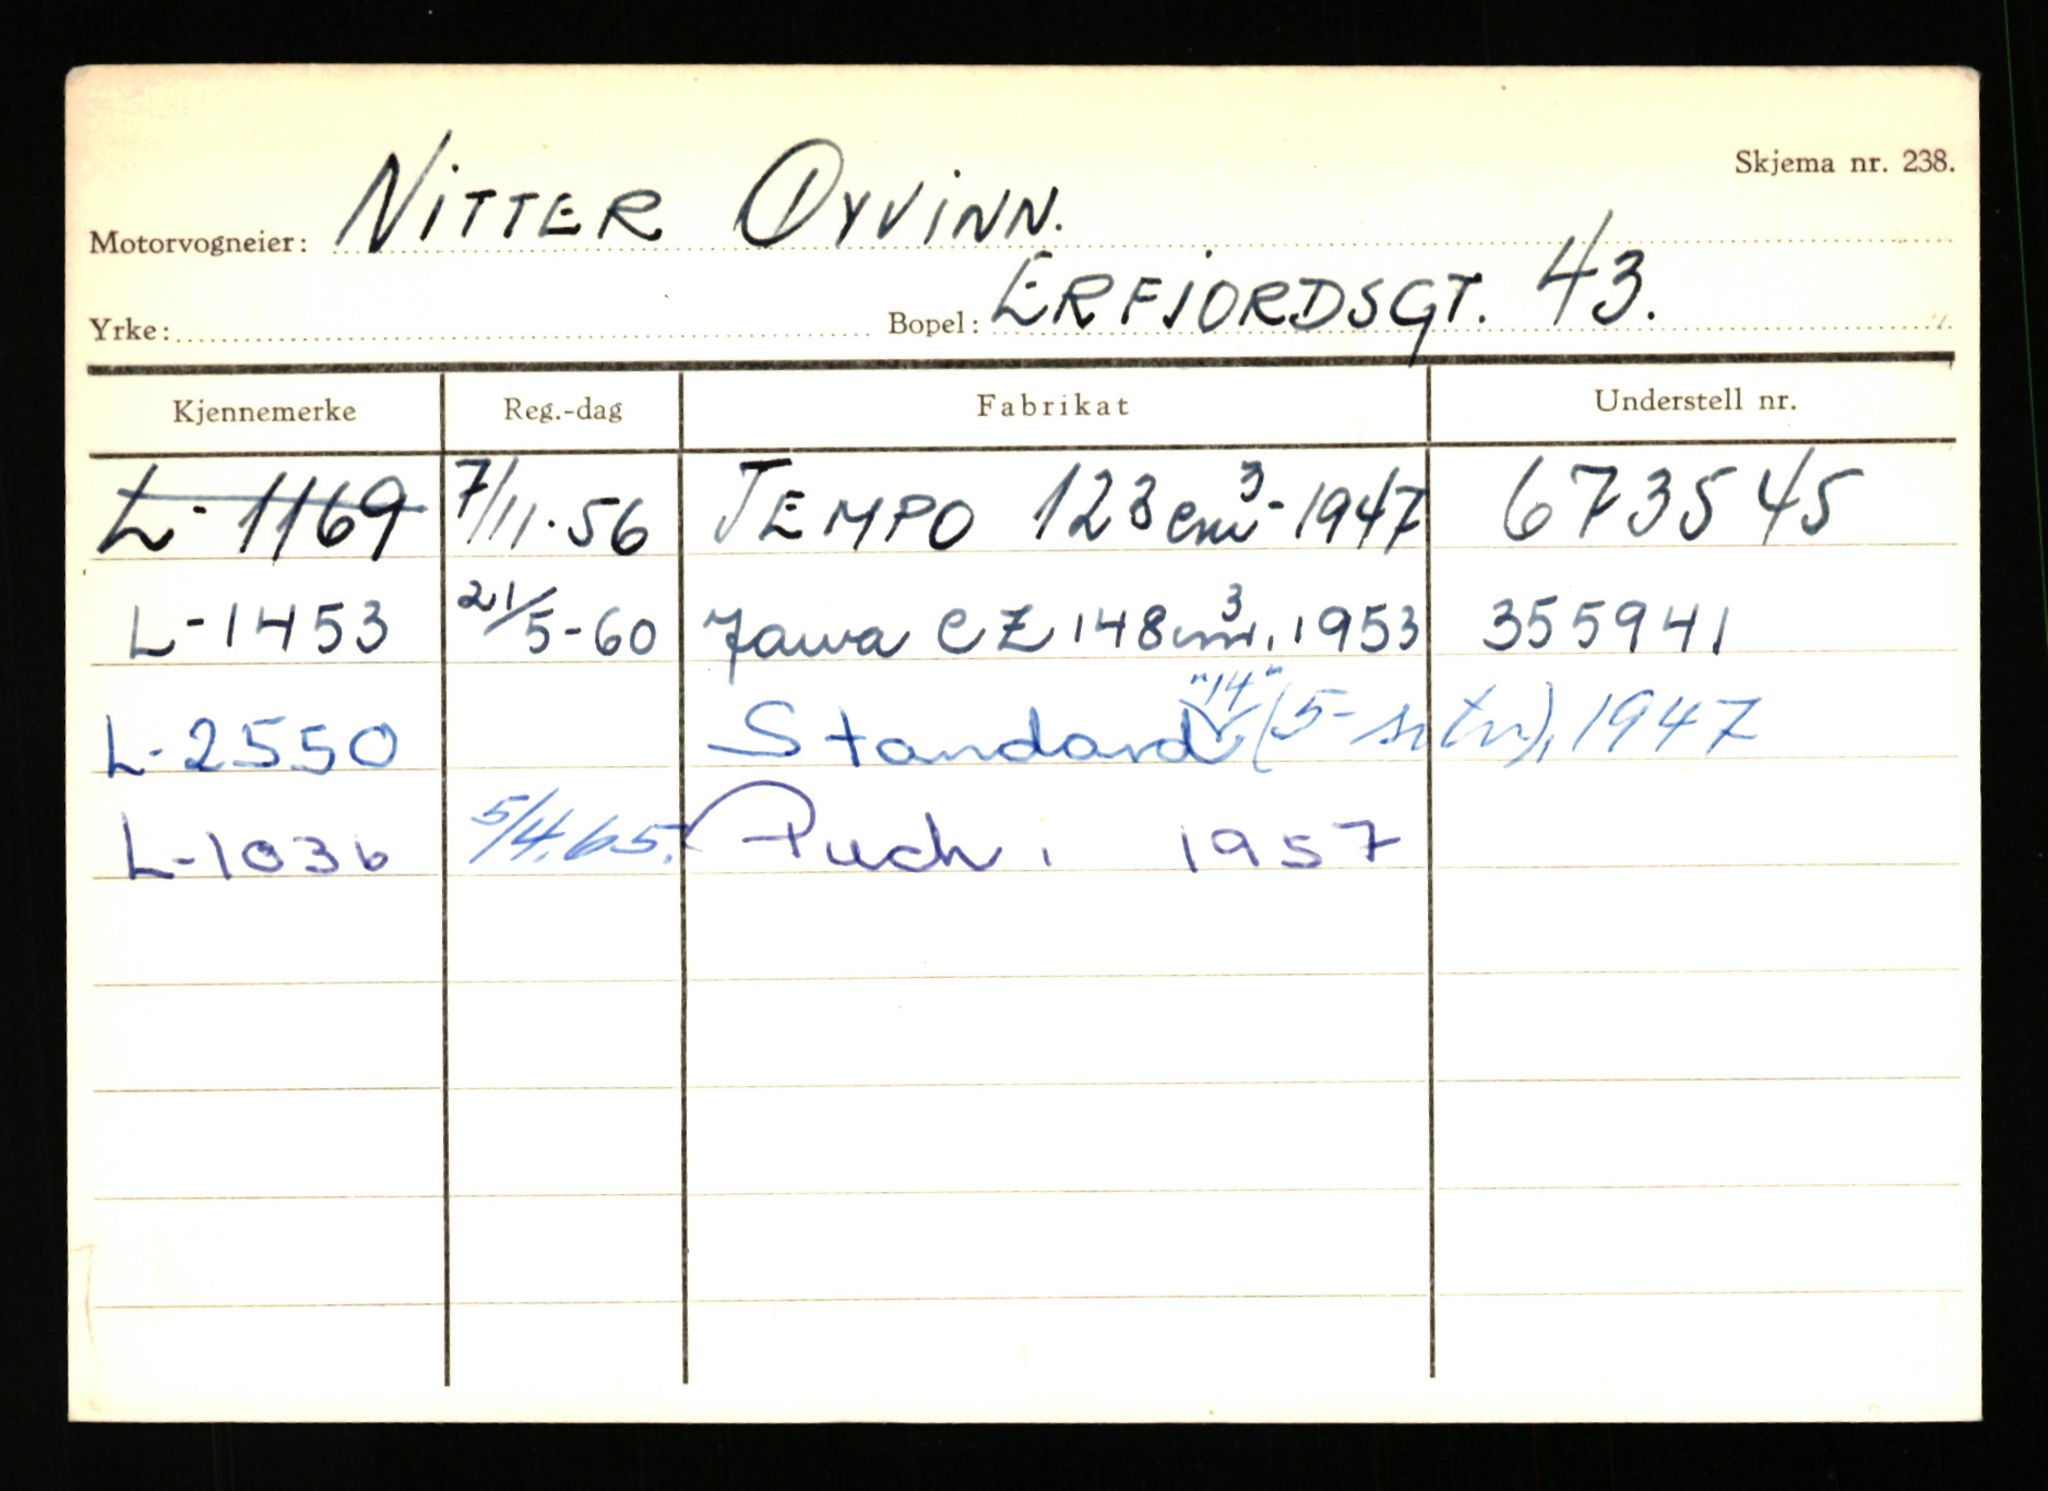 Skjema nr. 238.
Motorvogneier: NITTER ØYVINN.
Yrke: Bopel: ERFJORDSGT. 43.
Kjennemerke Reg.-dag Fabrikat Understell nr.
L-1169 7/11.56 TEMPO 123 cm³-1947 673545
L-1453 21/5-60 Jawa CZ 148 cm³, 1953 355941
L-2550 Standard "14" (5-seter), 1947
L-1036 5/4.65. Puch. 1957